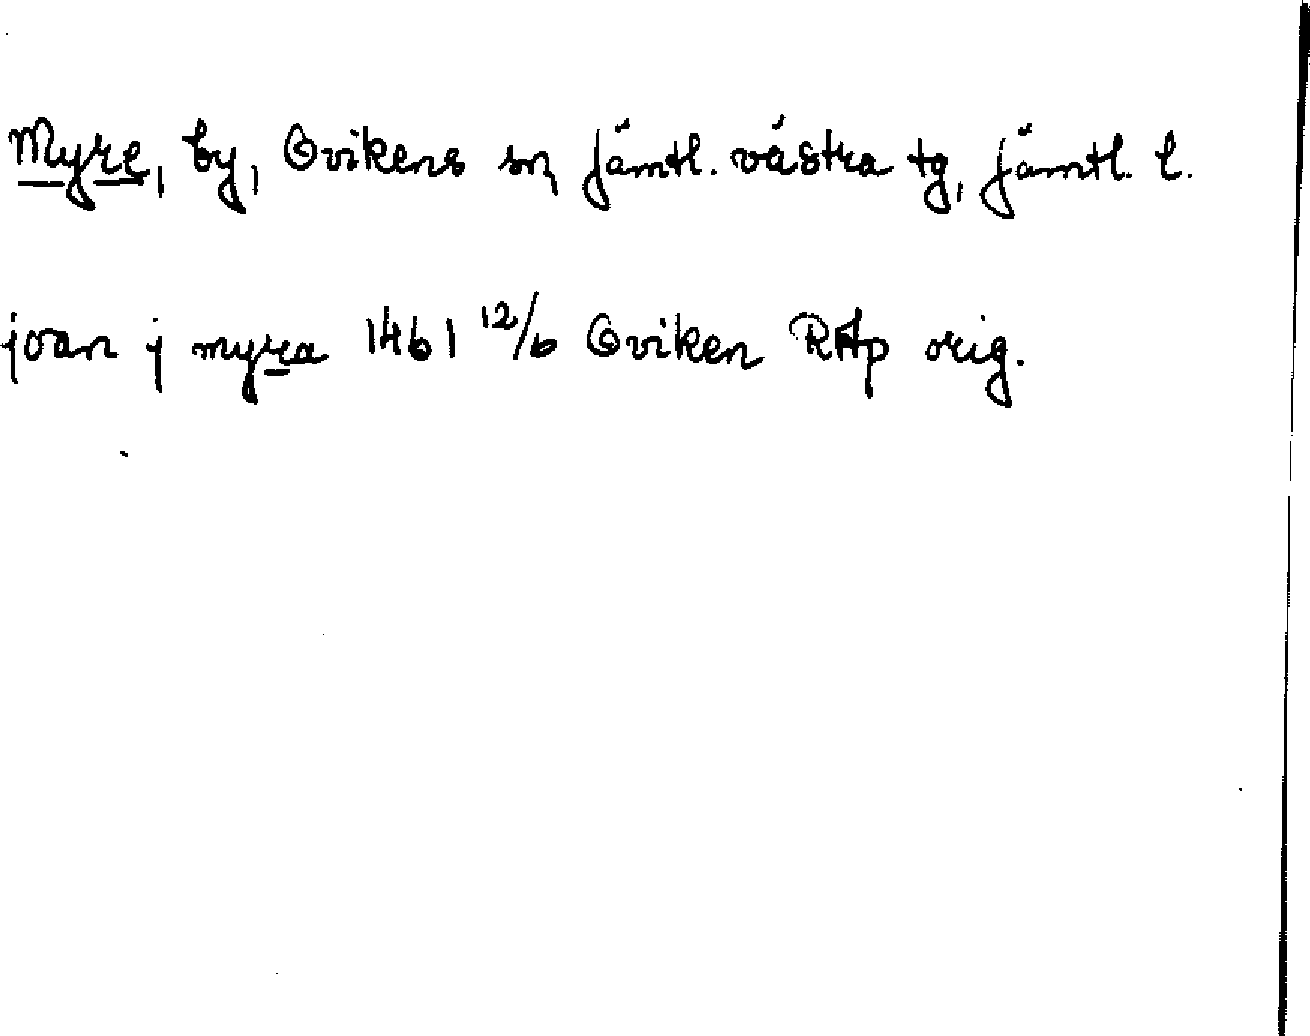 Myre, by, Ovikens sn, Jämtl. västra tg, Jämtl. l.
joan j myra 1461 12/6 Oviken RAp orig.